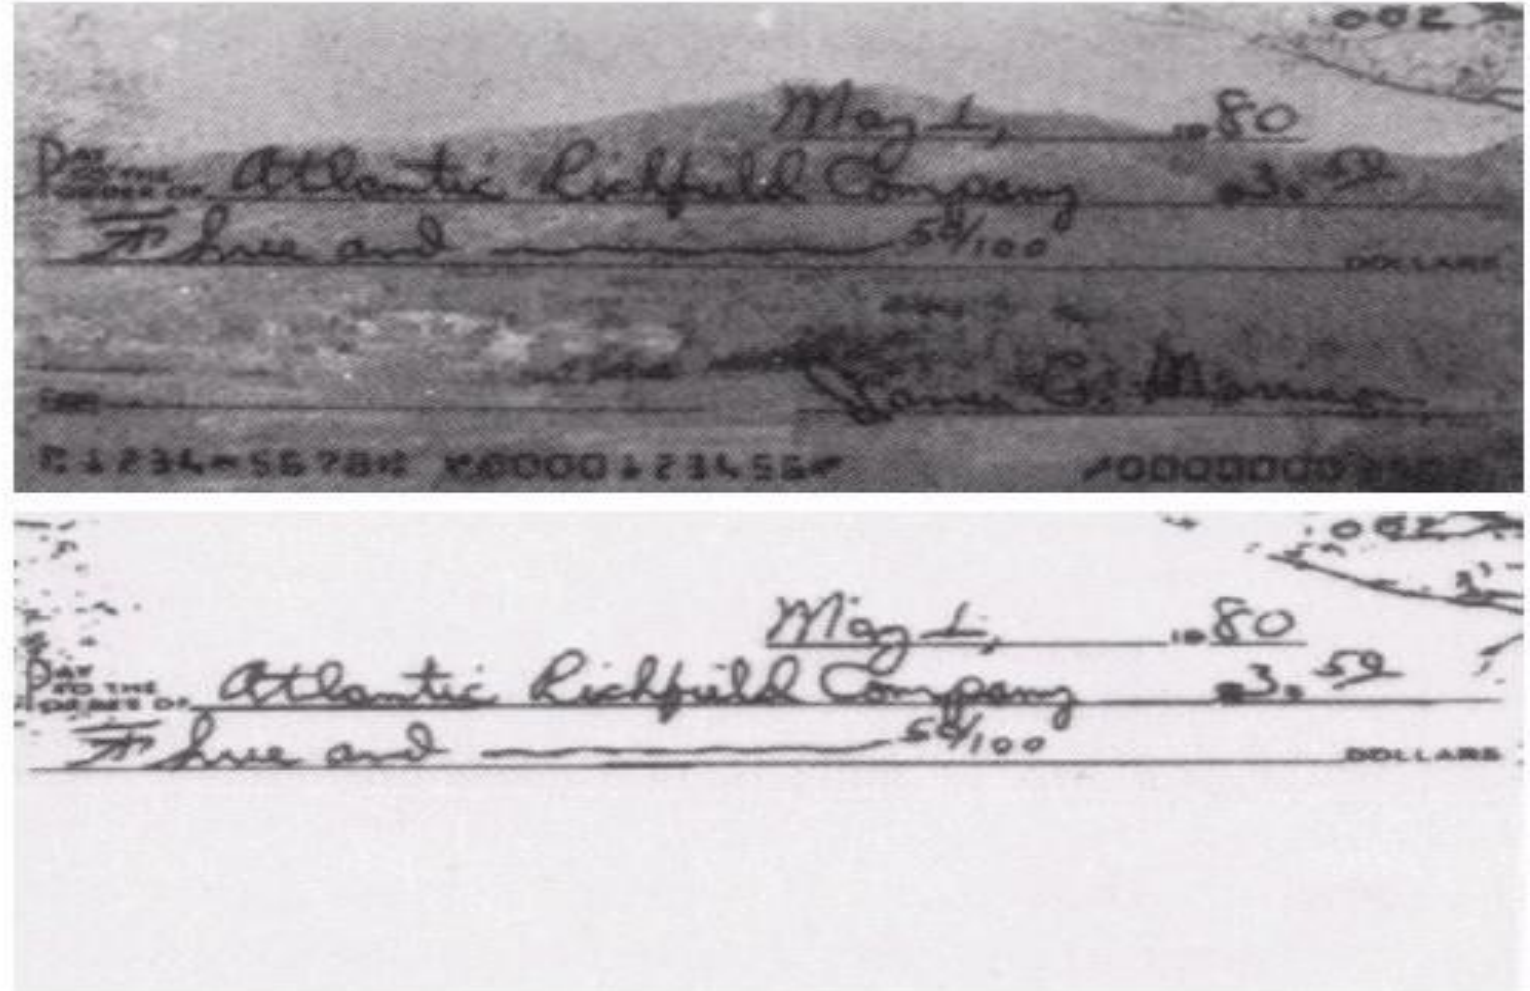 002
May 1, 19 80
PAY TO THE ORDER OF Atlantic Richfield Company 3.59
Three and 59/100 DOLLARS
James C. Morrison
1234 5678 0000123456
002
May 1, 19 80
PAY TO THE ORDER OF Atlantic Richfield Company 3.59
Three and 59/100 DOLLARS